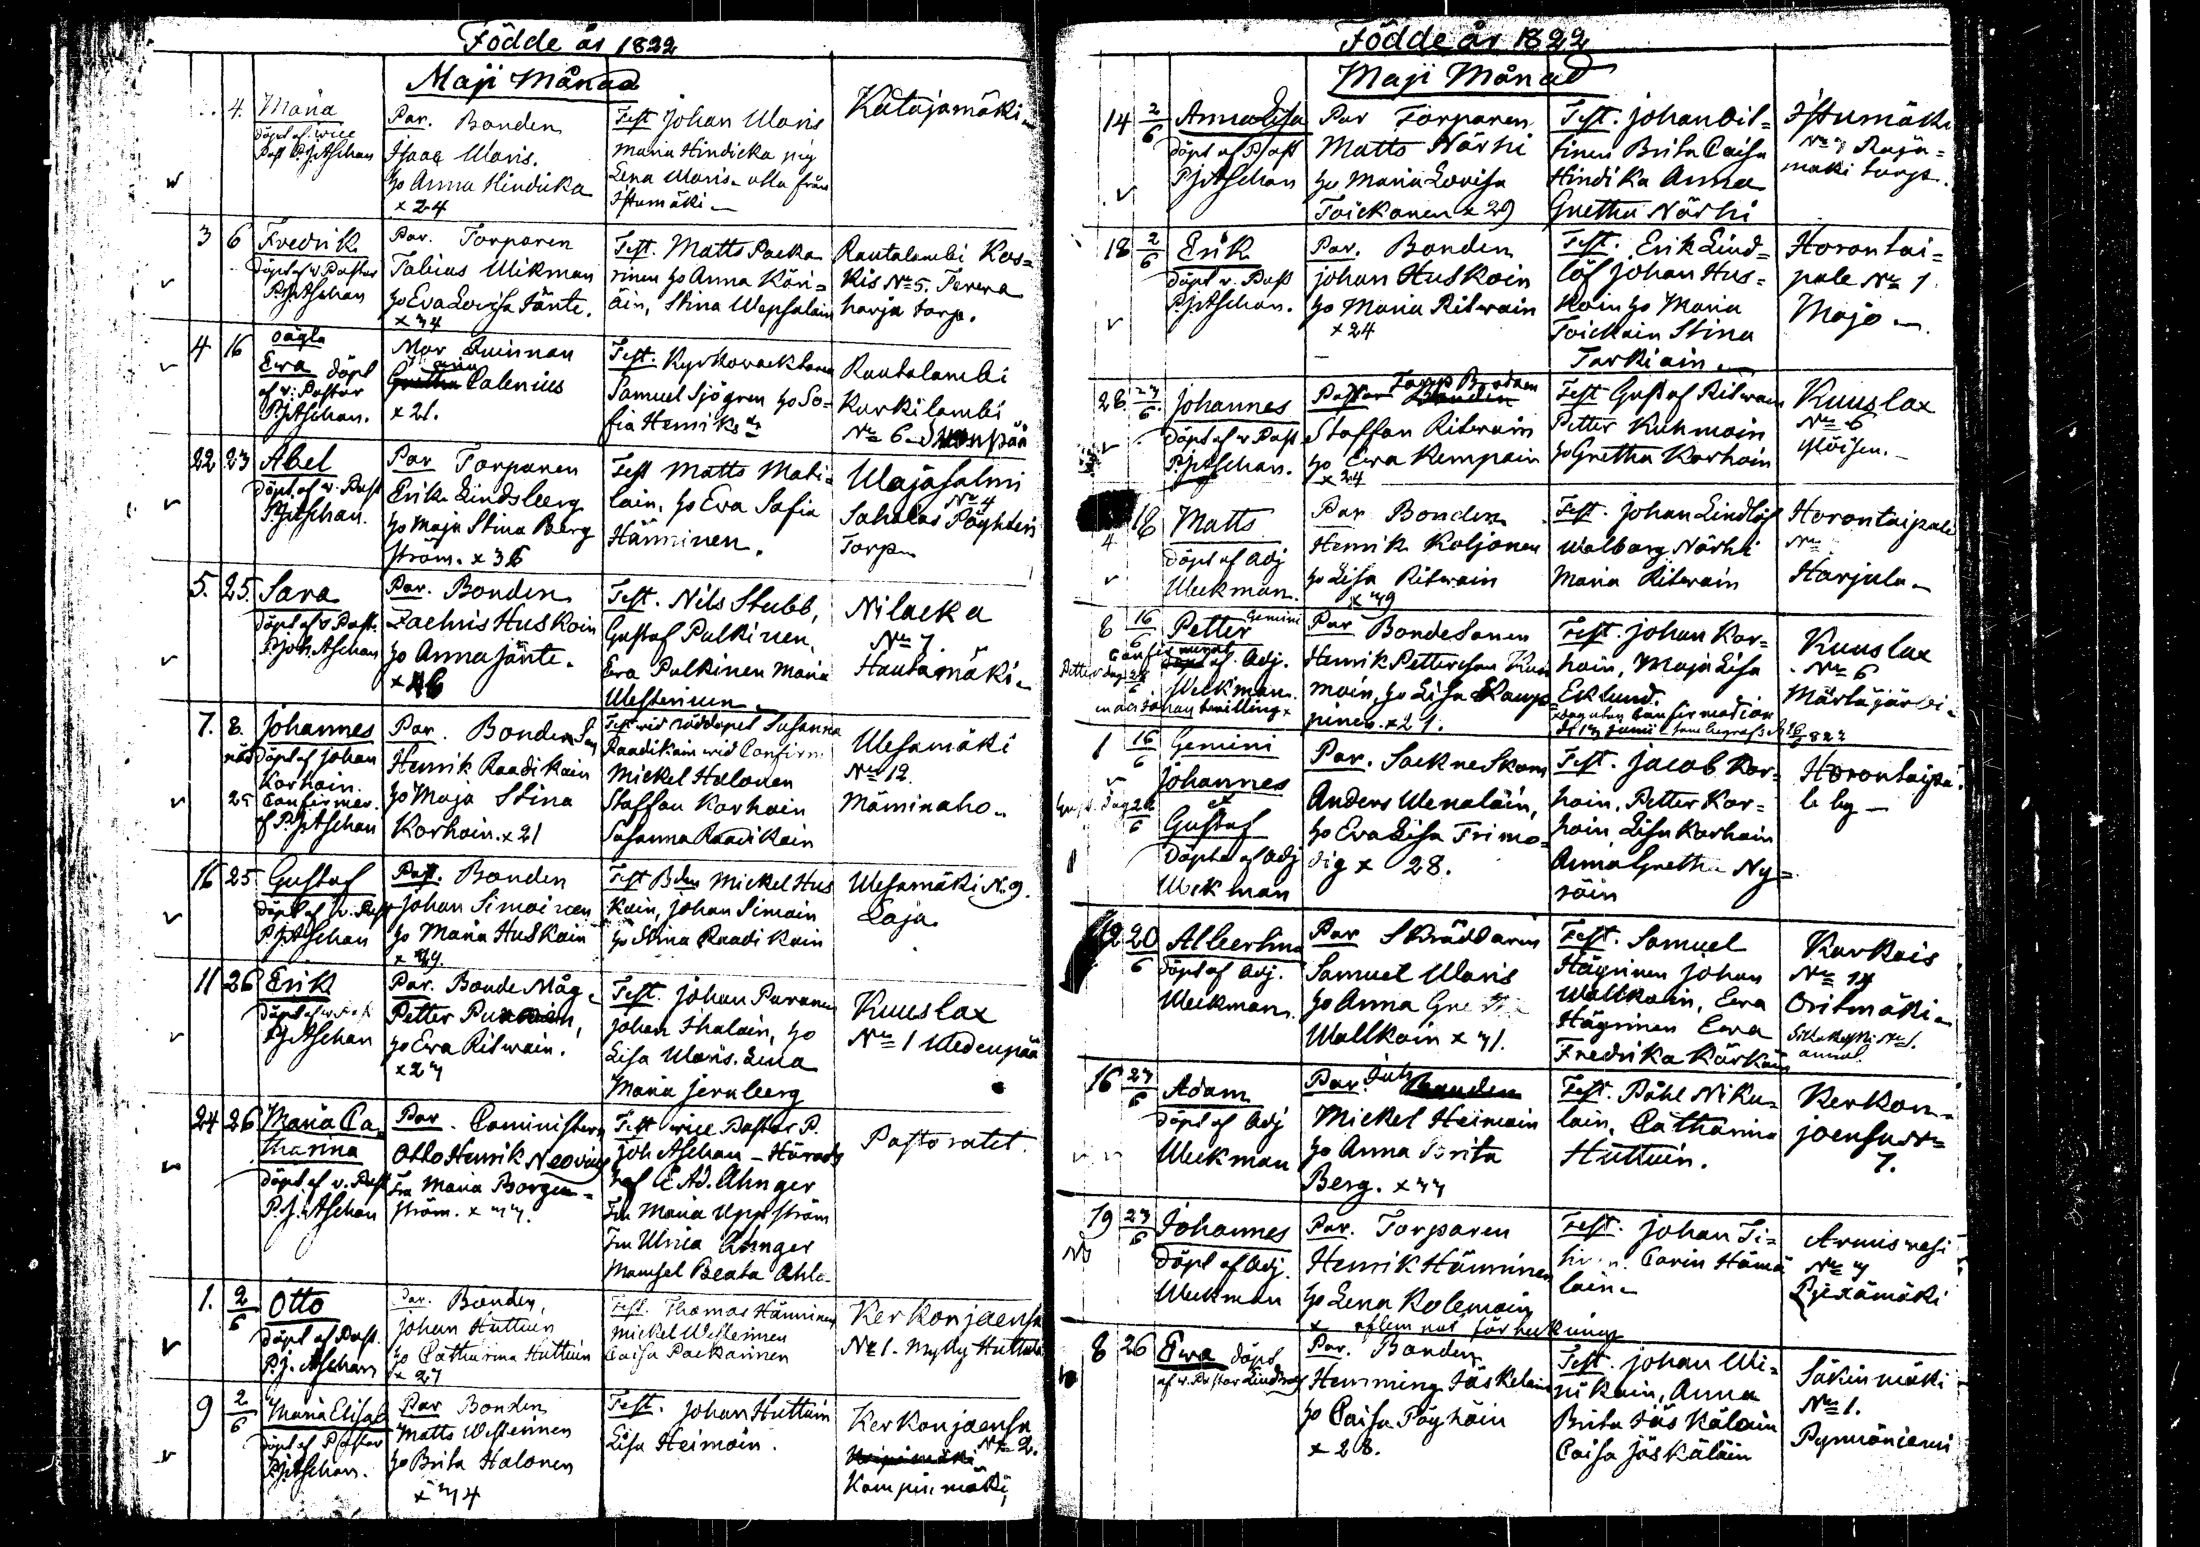 Födde år 1822
Maji Månad
4. Maria
döpt af wice
Past P J Aschan
Par. Bonden
Isaac Waris.
ho Anna Hindicka
x 24
Test Johan Waris
Maria Hindicka pig
Lena Waris alla från
Istumäki
Katajamäki
3 6 Fredrik
döpt af v. Pastor
P J Aschan
Par. Torparen
Tobias Wikman
ho Eva Lovisa Jänte.
x 34
Test. Matts Packa
rinen ho Anna Käri=
äin, Stina Wepsäläin
Rautalambi Kos=
kis No 5.
harju torp.
4 16 oägta
Ewa döpt
af v. Pastor
P J Aschan.
Mor Quinnan
Calenius
x 21.
Test. Kyrkovacktaren
Samuel Sjögren ho So=
fia Henriks dr
Rautalambi
Korkilambi
No 6
22 23 Abel
döpt af v. Past
P J Aschan.
Par Torparen
Erik Lindsberg
ho Maja Stina Berg
ström. x 36
Test Matts Mati=
lain, ho Eva Sofia
Hänninen.
Wajasalmi
No 4
Sahalas Pöyhösen
Torp
5. 25. Sara
döpt af v Past.
P Joh Aschan
Par. Bonden
Zachris Huskoin
ho Anna Jänte.
x 46
Test. Nils Stubb,
Gustaf Pulkinen,
Eva Pulkinen Maria
Westerinen
Nilacka
No 7.
Hautamäki
7. 8. Johannes
nöd döpt af Johan
Korhoin.
25 Confirmer.
af P. J Aschan
Par. Bonde Son
Henrik Raadikain
ho Maja Stina
Korhoin. x 21
Test. vid nöddopet Susanna
Raadikain vid Confirm
Mickel Halonen
Staffan Korhoin
Susanna Raadikain
Wesamäki
No 12.
Mäminaho
16 25 Gustaf
döpt af v. Past
P. J. Aschan
Par. Bonden
Johan Simoinen
ho Maria Huskoin
x 39.
Test Bden Mickel Hus
koin, Johan Simoin
ho Stina Raadikain
Wesamäki No 9.
Laja
11 26 Erik
döpt af v. Past
P J Aschan
Par. Bonde Måg
Petter Puranain,
ho Eva Ritwain.
x 27
Test. Johan Puranen
Johan Ihalain, ho
Lisa Waris. Lena
Maria Jernberg
Kuuslax
No 1 Wedenpää
24 26 Maria Ca=
tharina
döpt af v. Past
P. J. Aschan
Par. Comministern
Otto Henrik Neovius
Fru Maria Borgen=
ström. x 33.
Test wice Pastor P.
Joh Aschan – Härads
hof C Ad. Ahnger
Fru Maria Uppström
Fru Ulrica Ahnger
Mamsel Beata Ahla
Pastoratet
1. 2/6 Otto
döpt af Past.
P. J. Aschan
Par. Bonden
Johan Huttuin
ho Catharina Huttuin
x 27
Test. Thomas Hänninen
Mickel Westerinen
Caisa Packarinen
Kerkonjoensu
No 1. Mylly Huttula
9 2/6 Maria Elisab
döpt af Pastor
P J Aschan.
Par Bonden
Matts Westerinen
ho Brita Halonen
x 34
Test. Johan Huttuin
Lisa Heimoin.
Kerkonjoensu
No 2.
Kompinmäki
Födde år 1822
Maji Månad
14 2/6 Anna Lisa
döpt af Past
P J Aschan
Par Torparen
Matts Närhi
ho Maria Lovisa
Toickanen x 29
Test. Johan Oit=
tinen Brita Caisa
Hindika Anna
Gretha Närhi
Istumäki
No 3 Raja=
mäki torp.
18 2/6 Erik
döpt v. Past
P. J Aschan.
Par. Bonden
Johan Huskoin
ho Maria Ritwain
x 24
Test. Erik Lind=
löf Johan Hus=
koin ho Maria
Toickain Stina
Tarkiain
Horontai=
pale No 1
Majo
28 23/6 Johannes
döpt af v Past
P. J Aschan.
Staffan Ritwain
ho Ewa Kempain
x 24
Test Gustaf Ritwain
Petter Kuhmoin
ho Gretha Korhoin
Kuuslax
No 6
Ylöisen.
4 18 Matts
döpt af Adj
Weckman.
Par Bonden
Henrik Koljonen
ho Lisa Ritwain
x 39
Test. Johan Lindlöf
Walborg Närhi
Maria Ritwain
Horontaipale
No
Harjula
8 16/6 Petter Gemini
Confirmerat
af Adj.
Petter dag
Weckman.
Par Bonde Sonen
Henrik Pettersson Kuh
moin, ho Lisa Kaup=
pinen. x 21.
Test. Johan Kor=
hoin, Maja Lisa
Eklund.
Kuuslax
No 6
Märtäjärvi
1 16/6 Gemini
Johannes
et
Gustaf
döpta af Adj
Weckman
Par. Sockne Skom
Anders Wenäläin,
ho Eva Lisa Frimo=
dig x 28.
Test. Jacob Kor=
hoin, Petter Kor=
hoin Lisa Korhoin
Anna Gretha Ny=
röin
Horontaipa=
le by
12 20/6 Albertina
döpt af Adj.
Weckman
Par Skräddaren
Samuel Waris
ho Anna Gretha
Wallkoin x 31.
Test. Samuel
Häyrinen Johan
Wallkain, Ewa
Häyrinen Ewa
Fredrika Kärkäin
Korkois
No 14
Oritmäki
16 23/6 Adam
döpt af Adj
Weckman
Par. Inh
Mickel Heimoin
ho Anna Brita
Berg. x 33
Test. Påhl Niku=
lain, Catharina
Huttuin.
Kerkon=
joensu No
7.
19 23/6 Johannes
döpt af Adj.
Weckman
Par. Torparen
Henrik Hänninen
ho Lena Kolemain
Test. Johan Ti=
Carin Hämä
läin
Armisvesi
No 3
Pjexämäki
8 26 Ewa döpt
af v. Pastor
Par. Bonden
Hemming Jäskeläin
ho Caisa Pöyhöin
x 28.
Test. Johan Wi=
nikain, Anna
Brita Jäskäläin
Caisa Jäskäläin
Säkinmäki
No 1.
Pynnöniemi